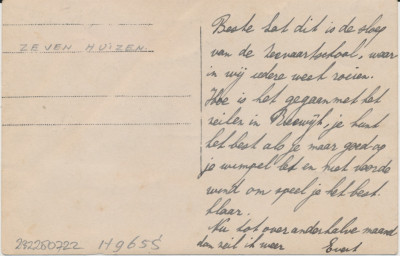 ZEVEN HUIZEN.
Beste bat dit is de sloep
van de Zeevaartschool, waar
in wij iedere week roeien.
Hoe is het gegaan met het
zeilen in , je kunt
het best als je maar goed op
je wimpel let en met voorde
wind om speel je het best
klaar.
Nu tot over anderhalve maand
dan zeil ik weer Evert
292280722 H9655